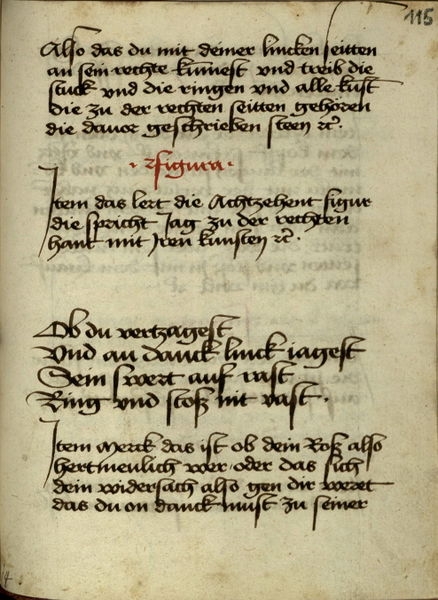 115
Also das du mit deiner lincken seitten
an sein rechte kumest vnd treib die
stuck vnd die ringen vnd alle kust
die zu der rechten seitten gehören
die dauor geschrieben steen ꝛc.
· 2figura ·
Item das lert die Achtzehent figur
die spricht Jag zu der rechten
hant mit Iren kunsten ꝛc.
Ob du vertzagest
Vnd an danck linck iagest
Sein swert auf vast
Ring vnd stosß nit vast .
Item Merck das ist ob dein Rosß also
hertmeulich wer oder das sich
dein widersach also gen dir weret
das du on danck must zu seiner
14